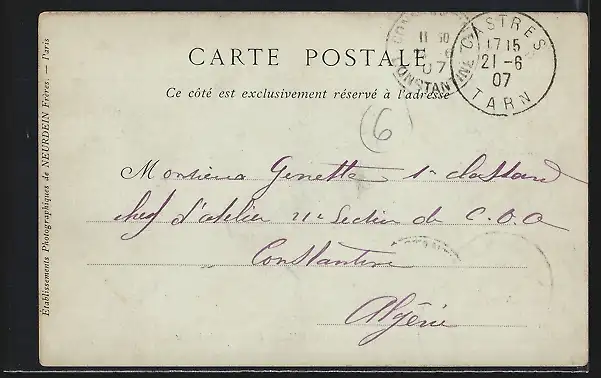 CARTE POSTALE
Ce côté est exclusivement réservé à l'adresse
CASTRES
17 15
21-6
07
TARN
CONSTANTINE
07
6
Monsieur Genette
chef d'atelier 21e Section de C.O.A
Constantine
Algérie
Établissements Photographiques de NEURDEIN Frères. — Paris